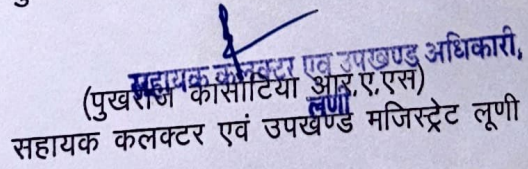 सहायक कलक्टर एवं उपखण्ड अधिकारी,
(पुखराज कासोटिया आर.ए.एस)
लूणी
सहायक कलक्टर एवं उपखण्ड मजिस्ट्रेट लूणी